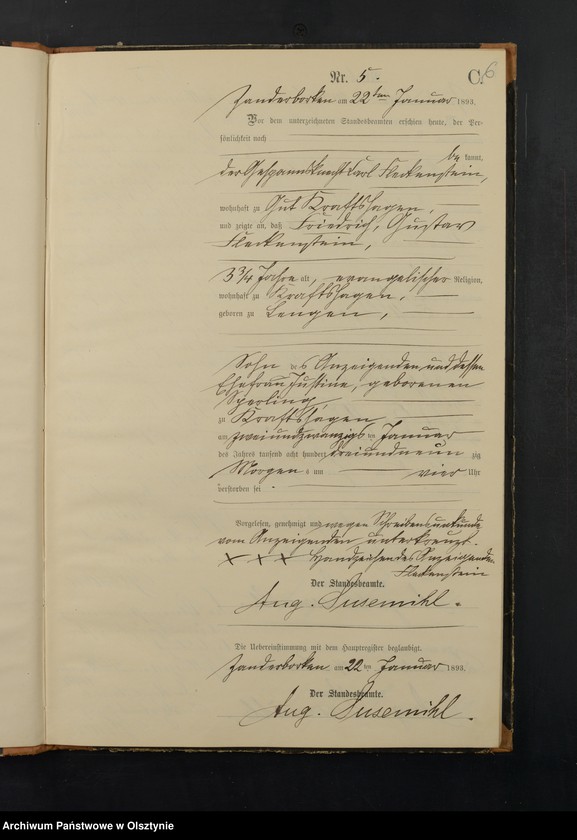 Nr. 5.
C.
6
Zanderborken am 22ten Januar 1893.
Vor dem unterzeichneten Standesbeamten erschien heute, der Per-
sönlichkeit nach
be kannt,
der Gespannknecht Carl Fleckenstein,
wohnhaft zu Gut Kraftshagen,
und zeigte an, daß Friedrich, Gustav
Fleckenstein,
3 3/4 Jahre alt, evangelischer Religion,
wohnhaft zu Kraftshagen,
geboren zu Langen,
Sohn des Anzeigenden und dessen
Ehefrau Justine, geborenen
Sperling
zu Kraftshagen
am zweiundzwanzigsten Januar
des Jahres tausend acht hundert dreiundneun zig
Morgens um vier Uhr
verstorben sei.
Vorgelesen, genehmigt und wegen Schreibensunkunde
vom Anzeigenden unterkreuzt.
+ + + Handzeichen des Anzeigenden
Fleckenstein
Der Standesbeamte.
Aug. Susemihl.
Die Uebereinstimmung mit dem Hauptregister beglaubigt.
Zanderborken am 22ten Januar 1893.
Der Standesbeamte.
Aug. Susemihl.
Archiwum Państwowe w Olsztynie